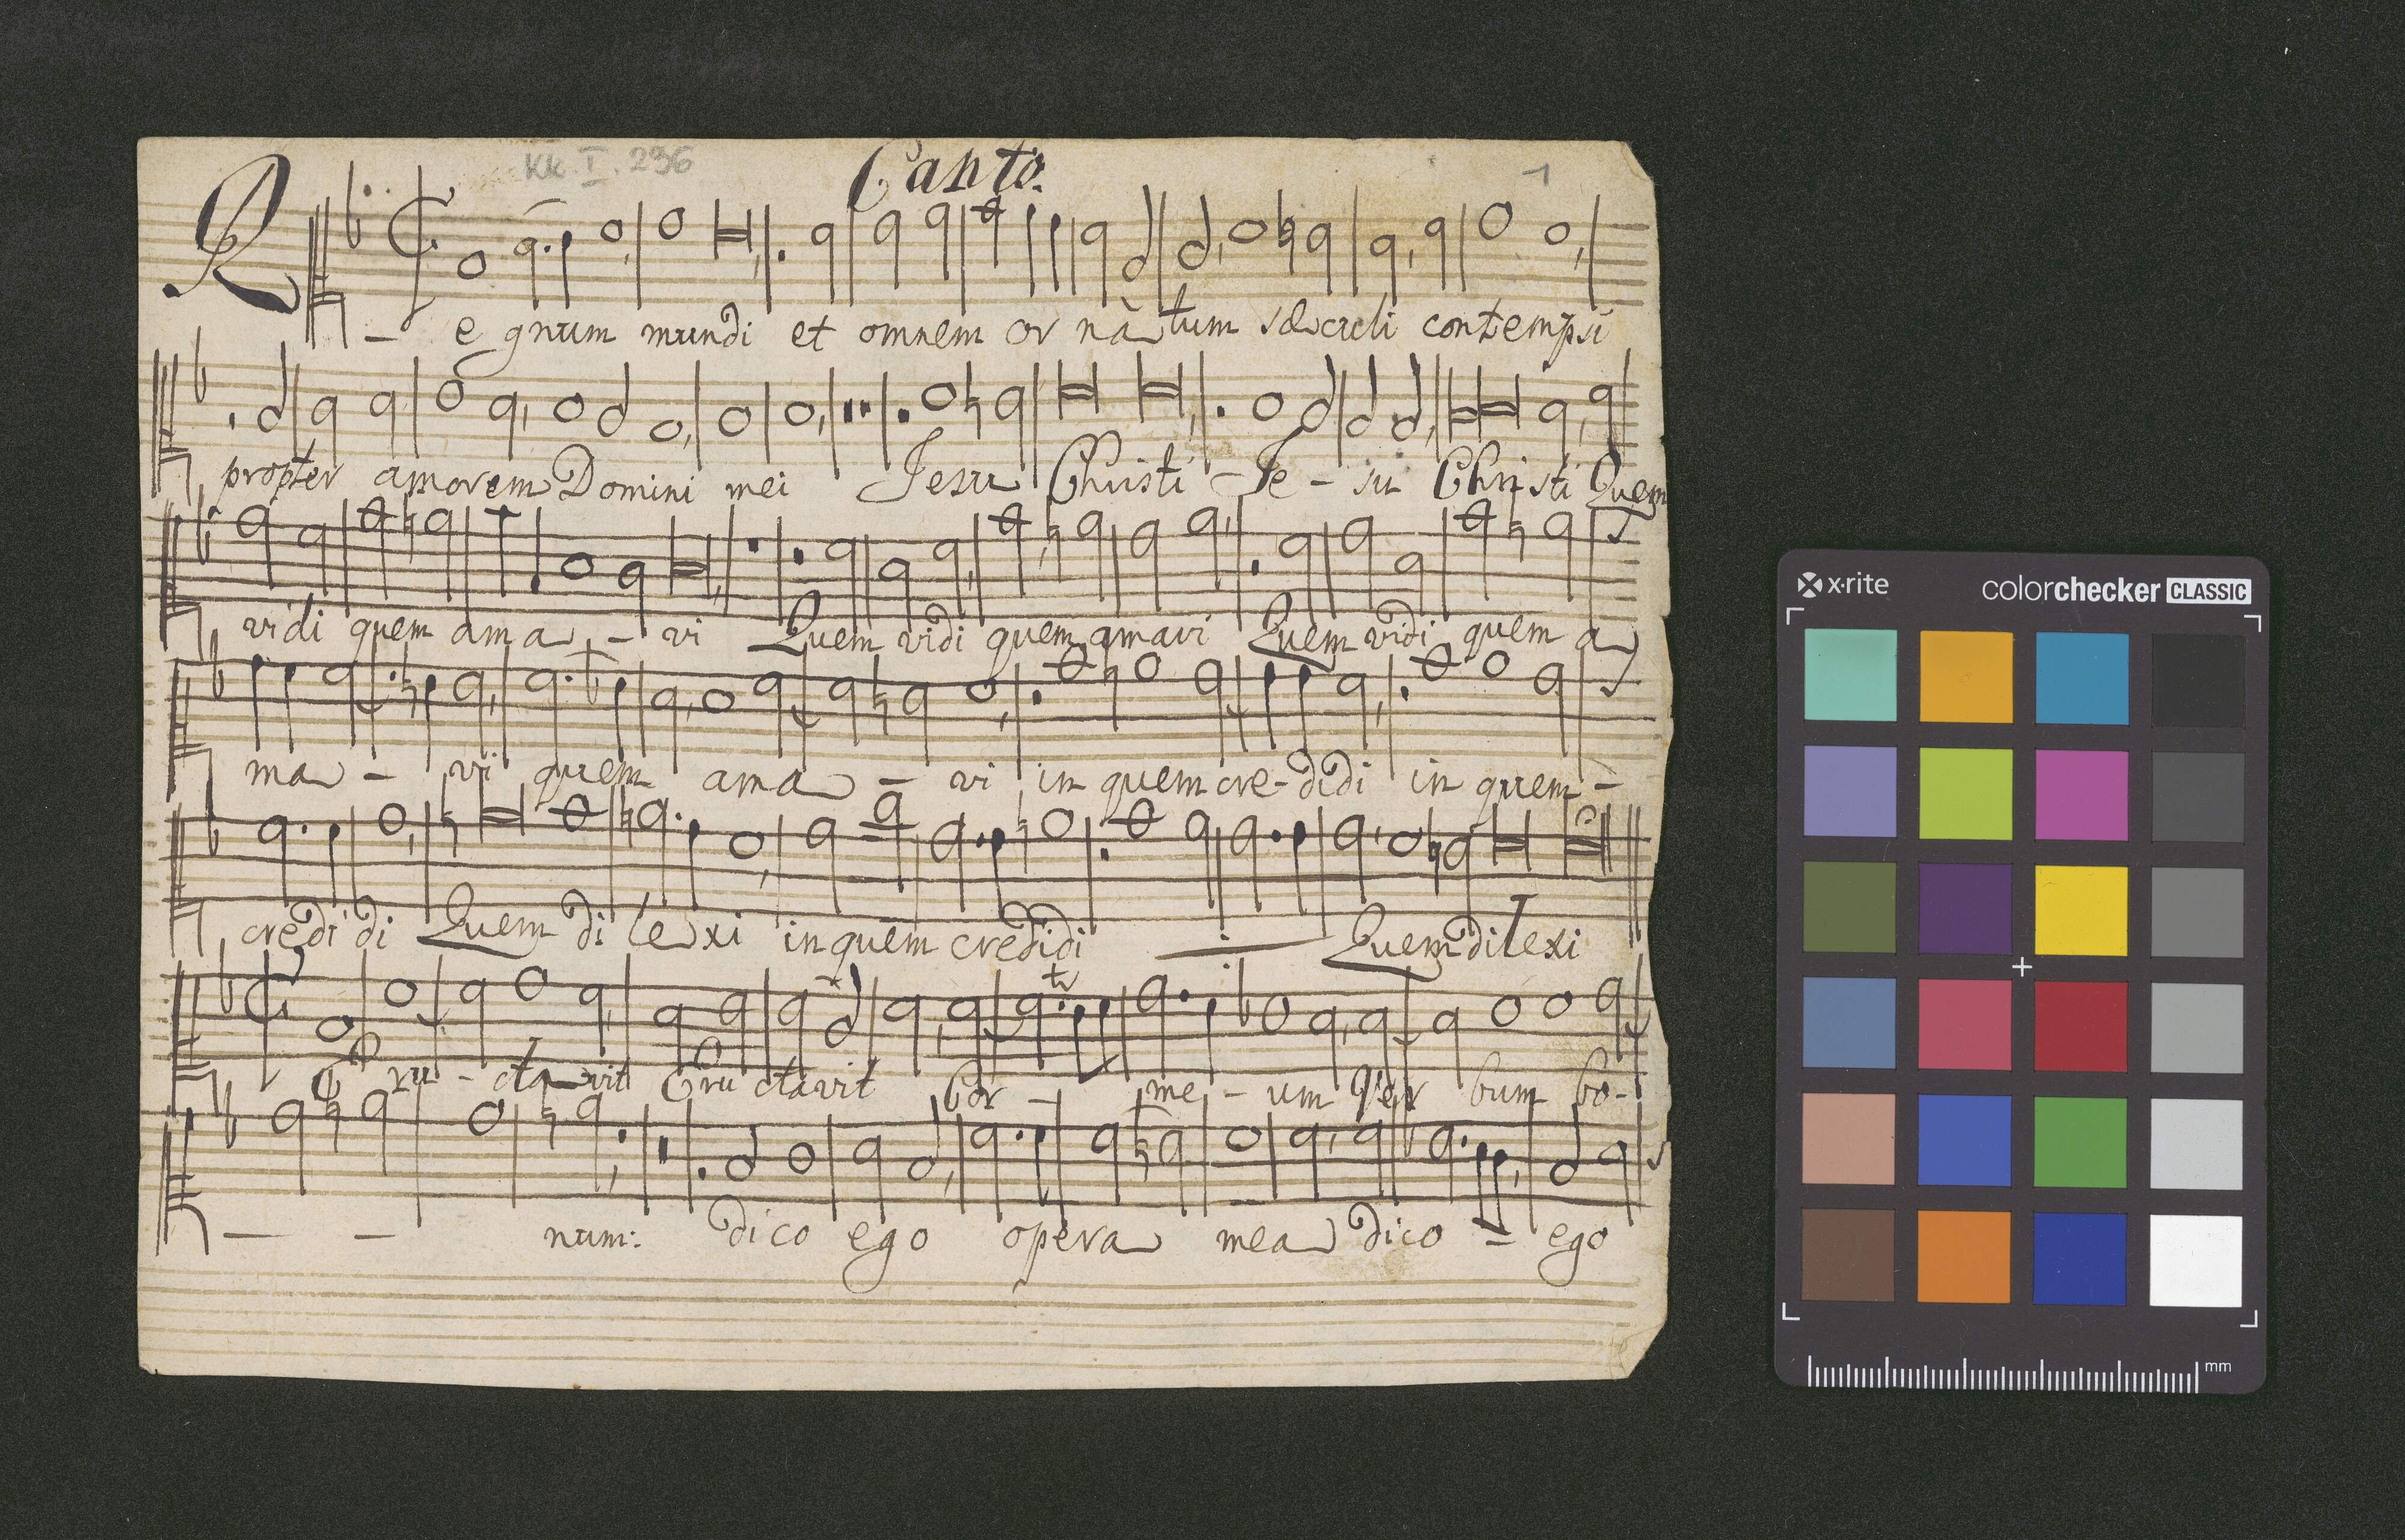 KK. I. 296
Canto.
1
R
- e gnum mundi et omnem or nà tum sæculi contempsi
propter amorem Domini mei Jesu Christi - Je - su Chri sti Quem
vidi quem ama - vi Quem vidi quem amavi Quem vidi quem a
ma - vi quem ama - vi in quem cre-didi in quem -
credi di Quem di lexi in quem credidi Quem dilexi
Eru - cta vit Eru ctavit Cor - me - um Ver bum bo -
- - num: dico ego opera mea dico - ego
x·rite
colorchecker CLASSIC
mm